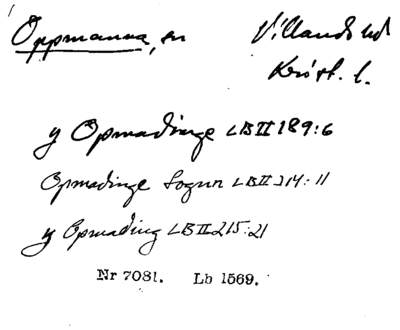 Oppmanna, sn Villands hd
Krist. l.
y Opmadinge LB II 189:6
Opmadinge Sognn LB II 214:11
y Opmading LB II 215:21
Nr 7081. Lb 1569.